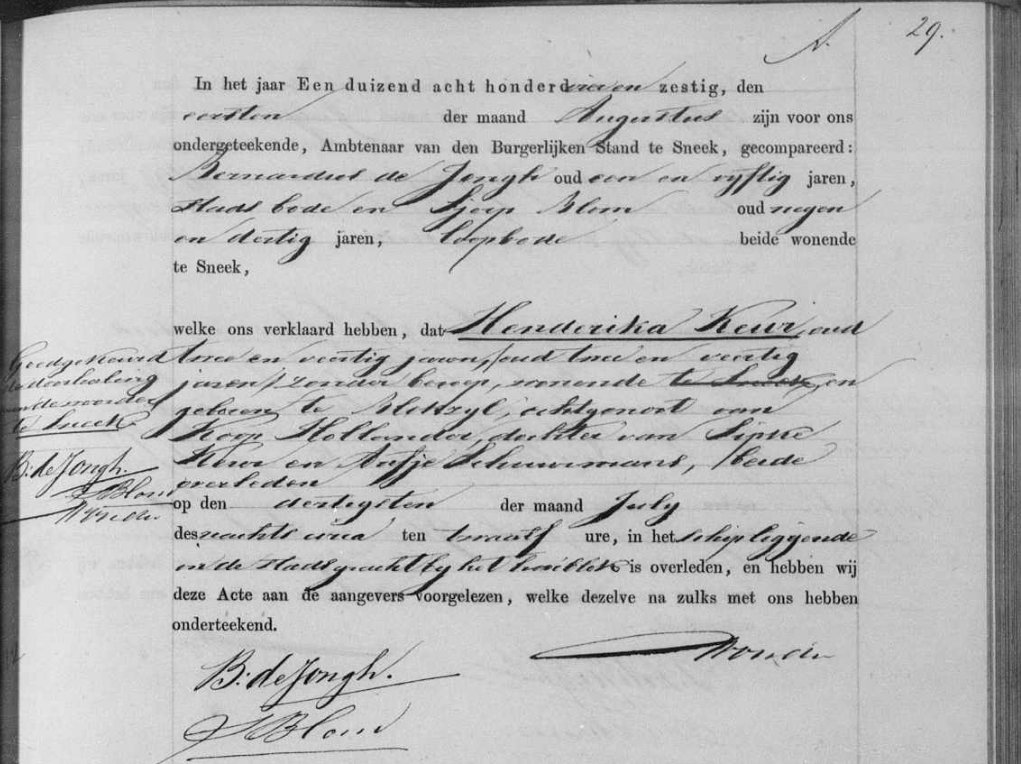 A. 29.
In het jaar Een duizend acht honderd vier en zestig, den
eersten der maand Augustus zijn voor ons
ondergeteekende, Ambtenaar van den Burgerlijken Stand te Sneek, gecompareerd:
Bernardus de Jongh oud een en vyftig jaren,
stads bode en Sjoerp Blom oud negen
en dertig jaren, loopbode beide wonende
te Sneek,
welke ons verklaard hebben, dat Henderika Keur, oud
twee en veertig jaren, /oud twee en veertig
jaren/ zonder beroep, wonende te Sneek, en
geboren te Blokzyl, echtgenoot van
Koop Hollander, dochter van Sipke
Keur en Aafje Schuurmans, beide
overleden
op den dertigsten der maand July
des nachts circa ten twaalf ure, in het schip liggende
in de Stadsgracht by het is overleden, en hebben wij
deze Acte aan de aangevers voorgelezen, welke dezelve na zulks met ons hebben
onderteekend.
B: de Jongh.
S Blom
Goedgekeurd
de doorhaling
van de woorden
te Sneek
B: de Jongh.
S Blom